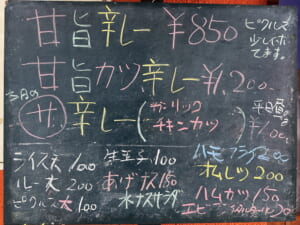 甘旨辛レー ¥850
ピクルス
少しイホ
てます。
甘旨カツ辛レー ¥1,200
3月の
ザ・辛レー
(ザ・リック
チキンカツ)
平日昼
ライス大 100
ルー大 200
ピクルス大 100
生玉子 100
あげナス 150
水ナスサラダ
ハモフライ 200
オムレツ 200
ハムカツ 150
エビ